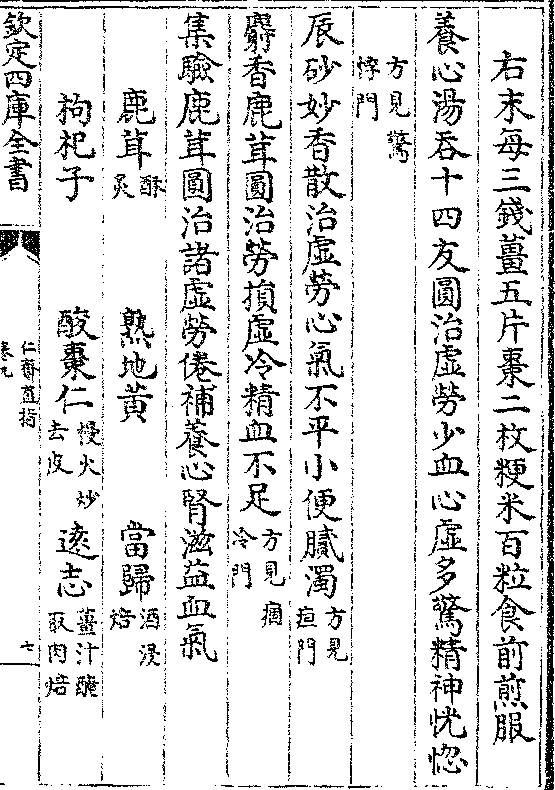 右末每三錢薑五片棗二枚粳米百粒食前煎服
養心湯吞十四友圓治虛勞少血心虛多驚精神恍惚
方見驚
悸門
辰砂妙香散治虛勞心氣不平小便膩濁方見
疸門
麝香鹿茸圓治勞損虛冷精血不足方見痼
冷門
集驗鹿茸圓治諸虛勞倦補養心腎滋益血氣
鹿茸酥
炙 熟地黃 當歸酒浸
焙
枸杞子 酸棗仁慢火炒
去皮 遠志薑汁醃
取肉焙
欽定四庫全書
仁齋直指
卷九
七